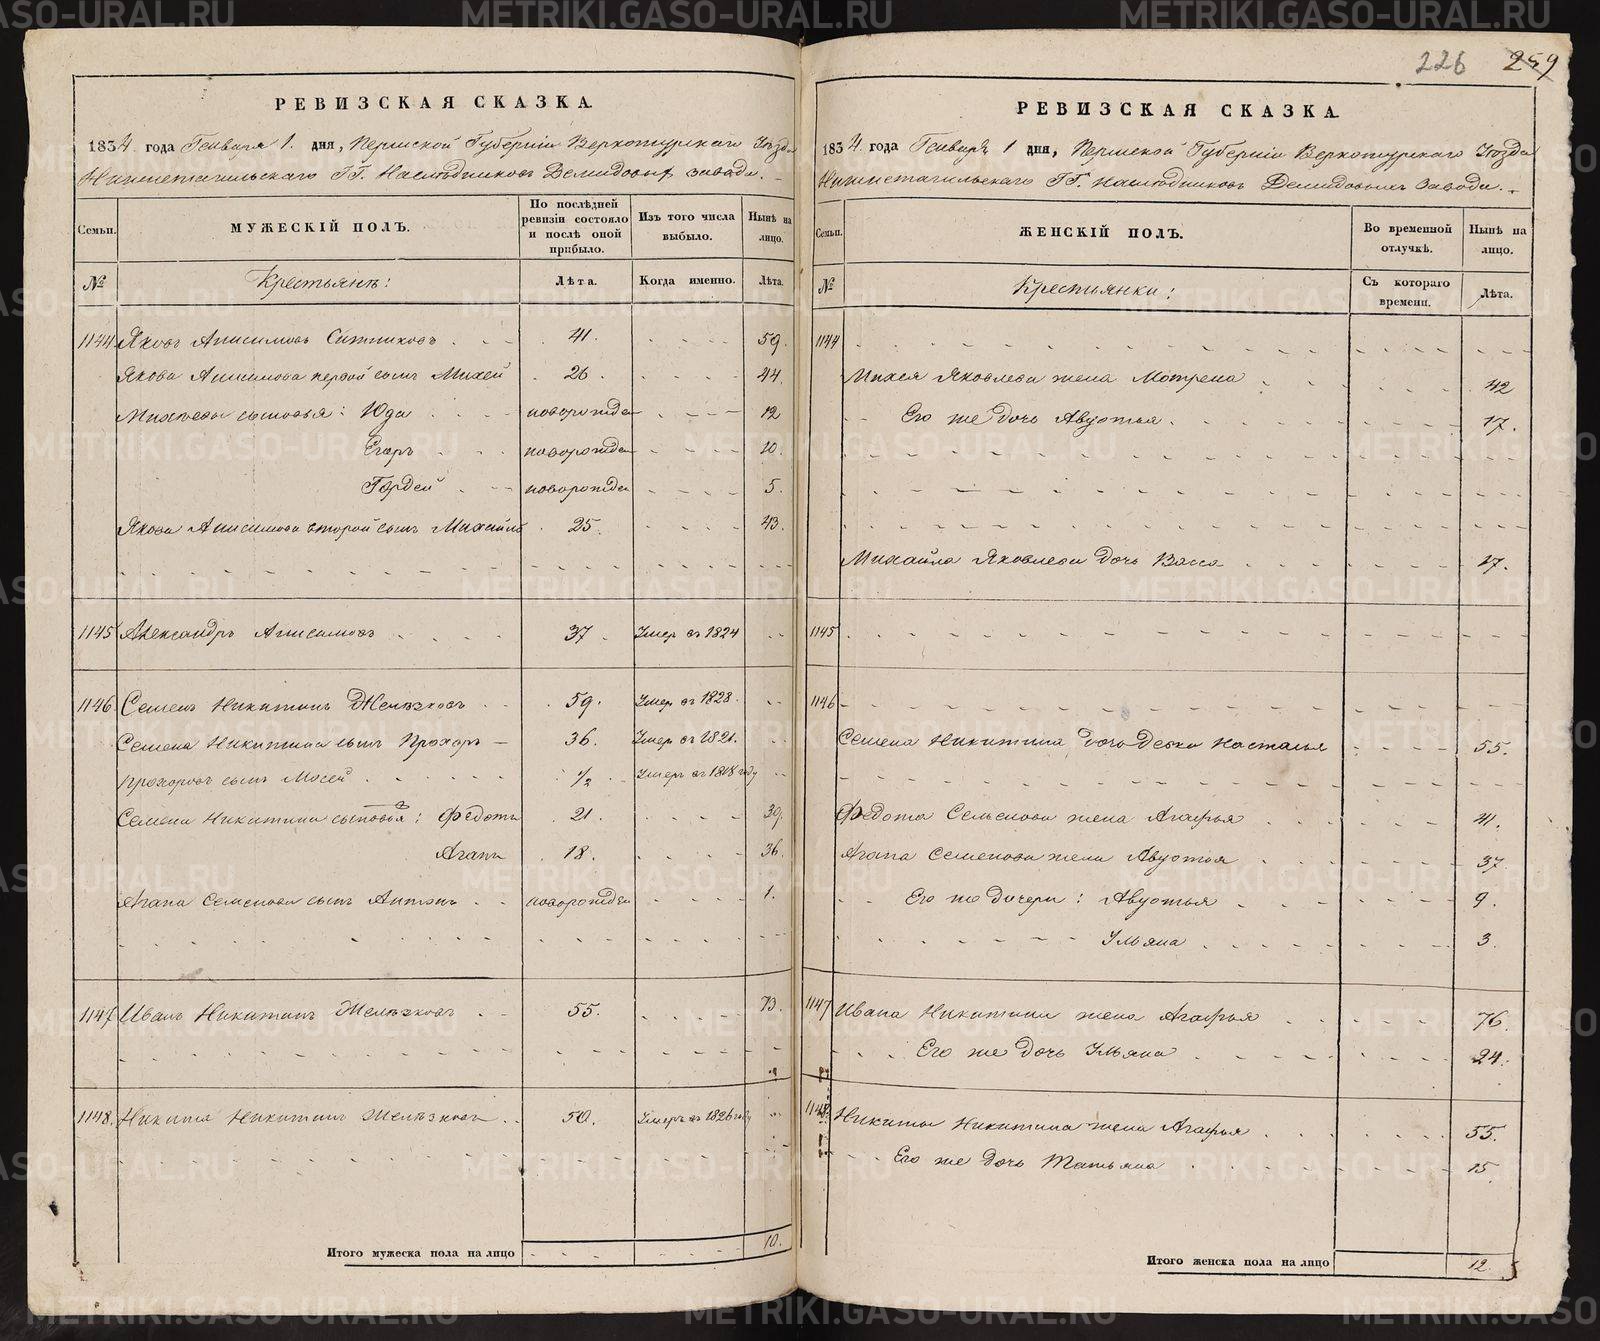 226 259
РЕВИЗСКАЯ СКАЗКА.
1834 года Генваря 1 дня, Пермской Губерніи Верхотурскаго Уѣзда
Нижнетагильскаго ГГ. Наслѣдниковъ Демидовых завода.
Семьи. МУЖЕСКІЙ ПОЛЪ. По послѣдней ревизіи состояло и послѣ оной прибыло. Изъ того числа выбыло. Нынѣ на лицо.
№ Крестьянъ: Лѣта. Когда именно. Лѣта.
1144 Яковъ Анисимовъ Ситниковъ 41. 59.
Якова Анисимова первой сынъ Михей 26 44.
Михѣевы сыновья: Юда новорожден 12
Егоръ новорожден 10.
Гордей новорожден 5.
Якова Анисимова второй сынъ Михайло 25. 43.
1145 Александръ Анисимовъ 37 Умер въ 1824
1146 Семенъ Никитинъ Желѣзковъ 59. Умер въ 1828.
Семена Никитина сынъ Прохоръ 36. Умер въ 1821.
Прохоровъ сынъ Мосей 1/2 Умеръ въ 1818 году
Семена Никитина сыновья: Федотъ 21. 39.
Агапъ 18. 36.
Агапа Семенова сынъ Антонъ новорожден 1.
1147 Иванъ Никитинъ Желѣзковъ 55. 73.
1148. Никита Никитинъ Желѣзковъ 50. Умеръ въ 1826 году
Итого мужеска пола на лицо 10.
РЕВИЗСКАЯ СКАЗКА.
1834 года Генваря 1 дня, Пермской Губерніи Верхотурскаго Уѣзда
Нижнетагильскаго ГГ. Наслѣдниковъ Демидовыхъ завода.
Семьи. ЖЕНСКІЙ ПОЛЪ. Во временной отлучкѣ. Нынѣ на лицо.
№ Крестьянки: Съ котораго времени. Лѣта.
1144
Михея Яковлева жена Мотрена 42
Его же дочь Авдотья. 17.
Михайла Яковлева дочь Васса 17.
1145
1146
Семена Никитина дочь Девка Настасья 55.
Федота Семенова жена Агафья 41.
Агапа Семенова жена Авдотья 37
Его же дочери: Авдотья 9.
Ульяна 3
1147 Ивана Никитина жена Агафья 76.
Его же дочь Ульяна 24.
1148. Никиты Никитина жена Агафья 55.
Его же дочь Татьяна 15.
Итого женска пола на лицо 12.
METRIKI.GASO-URAL.RU